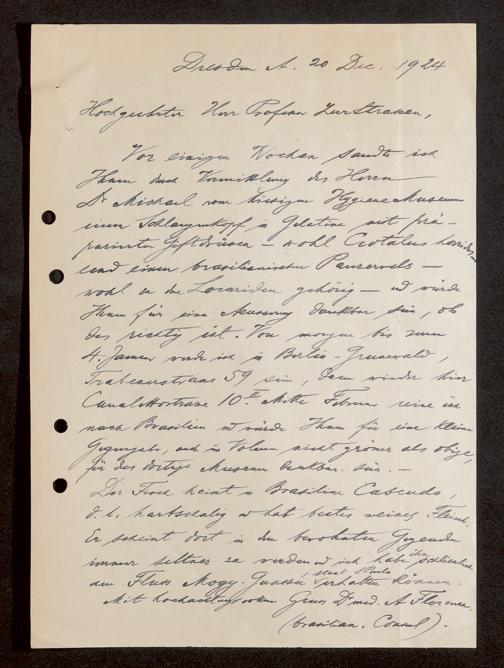 Dresden A. 20 Dec. 1924
Hochgeehrter Herr Professor Zur Strassen,
Vor einigen Wochen sandte ich
Ihnen durch Vermittlung des Herrn
Dr Michael vom hiesigen Hygiene Museum
einen Schlangenkopf in Gelatine mit prä-
parirten Giftdrüsen – wohl Crotalus horridus –
und einen brasilianischen Panzerwels –
wohl zu den Locariden gehörig – und würde
Ihnen für eine Äusserung dankbar sein, ob
das richtig ist. Von morgen bis zum
4. Januar werde ich in Berlin-Grunewald,
Trabenerstrasse 59 sein, dann wieder hier
Canalettostrasse 10 II Mitte Februar reise ich
nach Brasilien und würde Ihnen für eine kleine
Gegengabe, auch im Volumen nicht grösser als obige,
für das dortige Museum dankbar sein. –
Der Fisch heisst in Brasilien Cascudo,
d. h. hartschalig und hat festes weisses Fleisch.
Er scheint dort in den bewohnten Gegenden
immer seltner zu werden und ich habe ihn schliesslich
aus dem Fluss Mogy-Guassú Staat S Paulo erhalten können.
Mit hochachtungsvollem Gruss Dr med. A Florence
(brasilian. Consul).